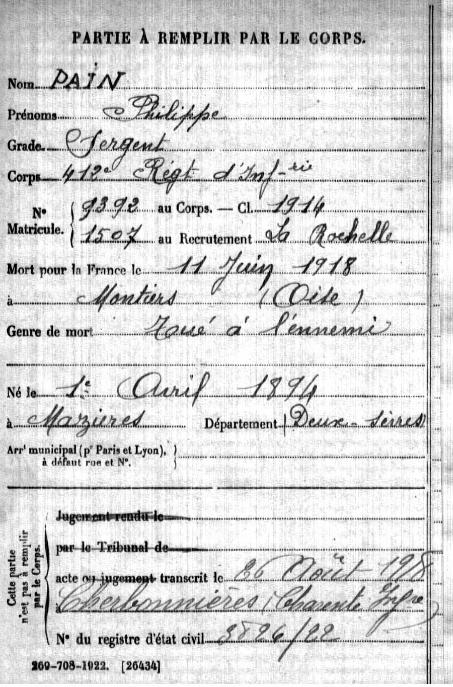 PARTIE À REMPLIR PAR LE CORPS.
Nom PAIN
Prénoms Philippe
Grade Sergent
Corps 412e Régt d'Inf-rie
N° Matricule. 9392 au Corps. — Cl. 1914
1507 au Recrutement La Rochelle
Mort pour la France le 11 Juin 1918
à Montiers (Oise)
Genre de mort Tué à l'ennemi
Né le 1e Avril 1894
à Mazières Département Deux-Sèvres
Arrt municipal (pr Paris et Lyon),
à défaut rue et N°.
Cette partie n'est pas à remplir par le Corps.
Jugement rendu le
par le Tribunal de
acte ou jugement transcrit le 26 Août 1918
à Cherbonnières (Charente Infre
N° du registre d'état civil 3526/22
269-708-1922. [26434]